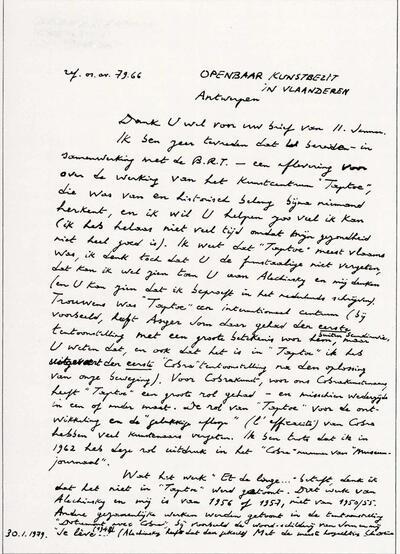 ref. 01.01. 79.66 OPENBAAR KUNSTBEZIT
IN VLAANDEREN
Antwerpen
Dank U wel voor uw brief van 11.
Ik ben zeer tevreden dat U bereiden — in
samenwerking met de B.R.T. — een aflevering voor
over de werking van het Kunstcentrum "Taptoe",
die was van een historisch belang bijna niemand
herkent, en ik wil U helpen zoveel ik kan
(ik heb helaas niet veel tijd omdat mijn gezondheid
niet heel goed is). Ik weet dat "Taptoe" meest vlaams
was, ik denk toch dat U de franstalige niet vergeten,
dat kan ik wel zien toen U aan Alechinsky en mij denken
(en U kan zien dat ik beproeft in het nederlands schrijven).
Trouwens was "Taptoe" een internationaal centrum (bij
voorbeeld, heeft Asger Jorn daar gehad den eerste
tentoonstelling met een grote betekenis voor hem, buiten Scandinavie, maar
U weten dat, en ook dat het is in "Taptoe" ik heb
den eerste "Cobra" tentoonstelling na den oplossing
van onze beweging). Voor Cobrakunst, voor ons Cobrakunstenaars,
heeft "Taptoe" een grote rol gehad — en misschien wederzijds
in een of ander maat. De rol van "Taptoe" voor de ont-
wikkeling en de "gelukkige afloop" (l'efficacité) van Cobra
hebben veel kunstenaars vergeten. Ik ben trots dat ik in
1962 heb deze rol uitdruk in het "Cobra"-nummer van "Museum-
journaal".
Wat het werk "Et da large..." betreft, denk ik
dat het niet in "Taptoe" werd getoont. Dit werk van
Alechinsky en mij is van 1956 of 1957, niet van 1950/55.
Andere gezamenlijke werken werden getoont in de tentoonstelling
"avec Cobra", bij voorbeeld de woord-schilderij van Jorn en mij
30.1.1979. "Je lève" (Alechinsky heeft dat den ) Met de meest